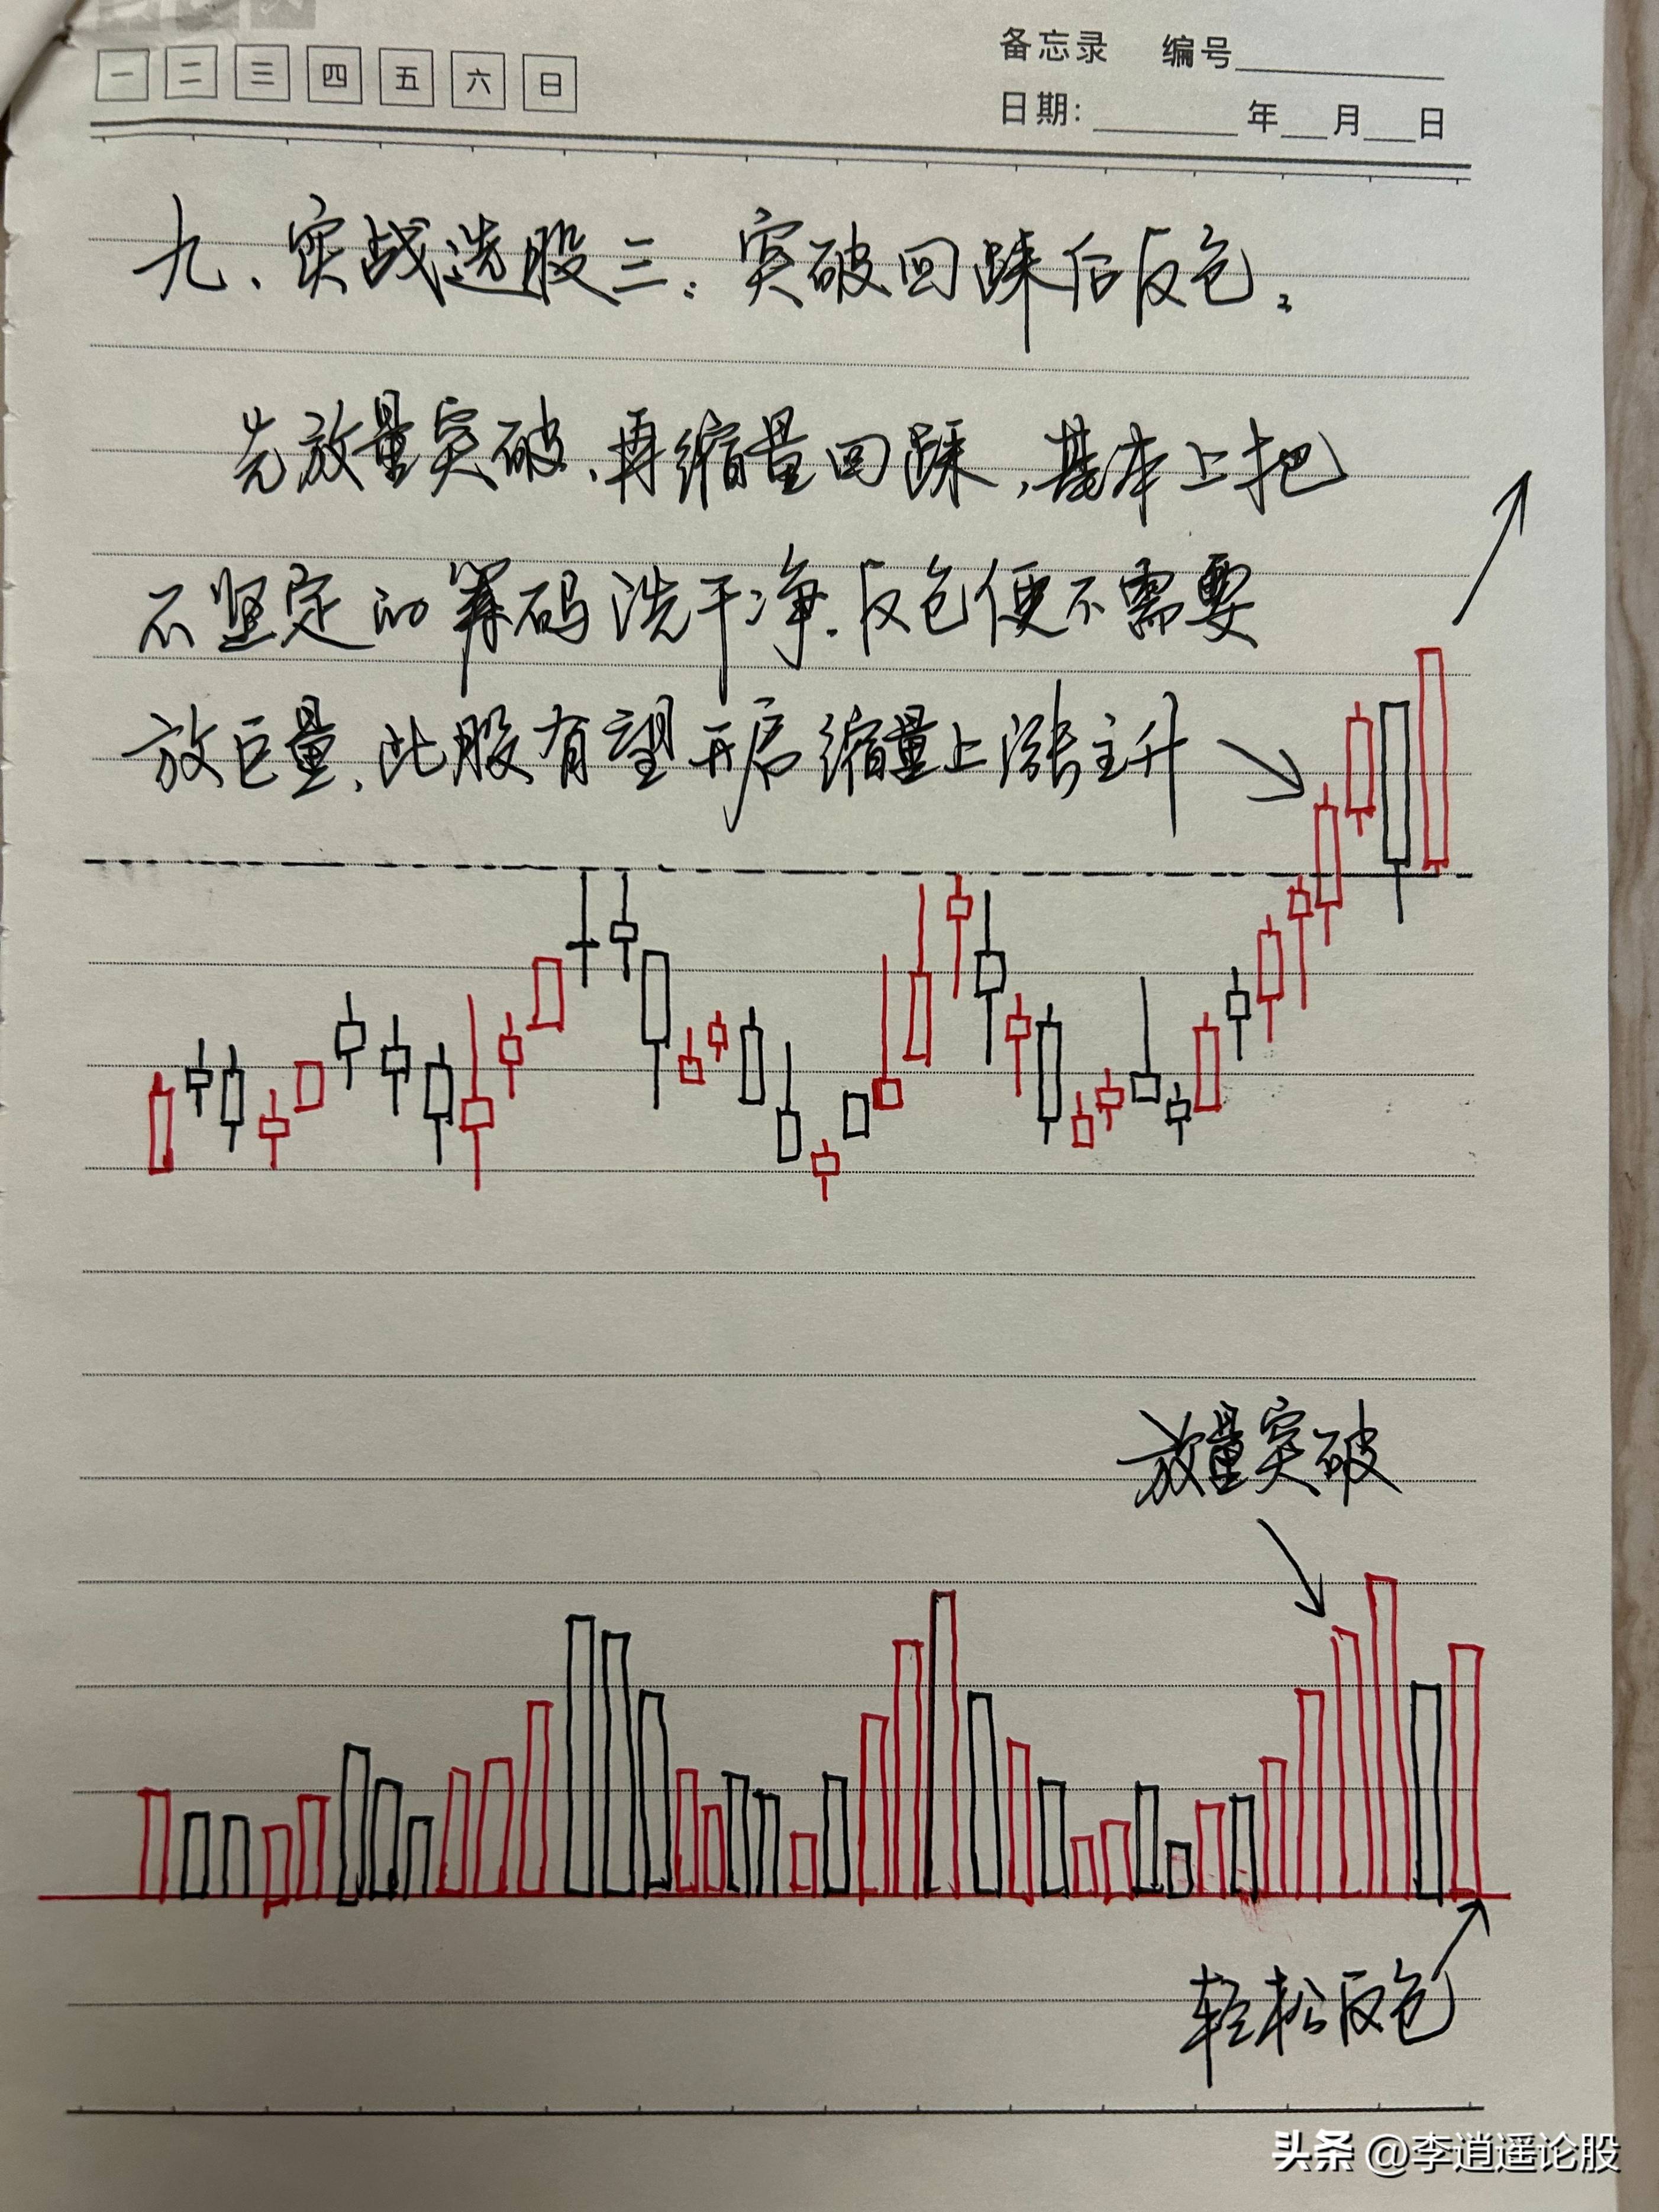 一 二 三 四 五 六 日
备忘录 编号
日期: 年 月 日
九、实战选股三：突破回踩后反包。
先放量突破、再缩量回踩，基本上把
不坚定的筹码洗干净.反包便不需要
放巨量，此股有望开启缩量上涨主升
放量突破
轻松反包
头条 @李逍遥论股